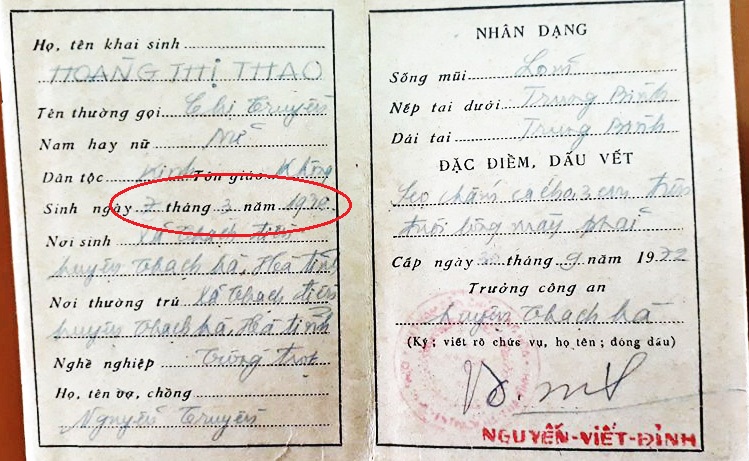 Họ, tên khai sinh
HOANG THỊ THAO
Tên thường gọi Chị Truyên
Nam hay nữ Nữ
Dân tộc Kinh Tôn giáo Không
Sinh ngày 7 tháng 3 năm
Nơi sinh Xã Thạch tiến
huyện thạch hà, Hà tĩnh
Nơi thường trú Xã thạch tiến
huyện thạch hà, Hà tĩnh
Nghề nghiệp Trồng trọt
Họ, tên vợ, chồng
Nguyễn Truyên
NHÂN DẠNG
Sống mũi Lõm
Nếp tai dưới Trung Bình
Dái tai Trung Bình
ĐẶC ĐIỂM, DẤU VẾT
Sẹo chấm cách 3 cm trên
đuôi lông mày phải
Cấp ngày tháng 9 năm 1972
Trưởng công an
huyện thạch hà
(Ký; viết rõ chức vụ, họ tên; đóng dấu)
NGUYỄN-VIẾT-ĐỈNH